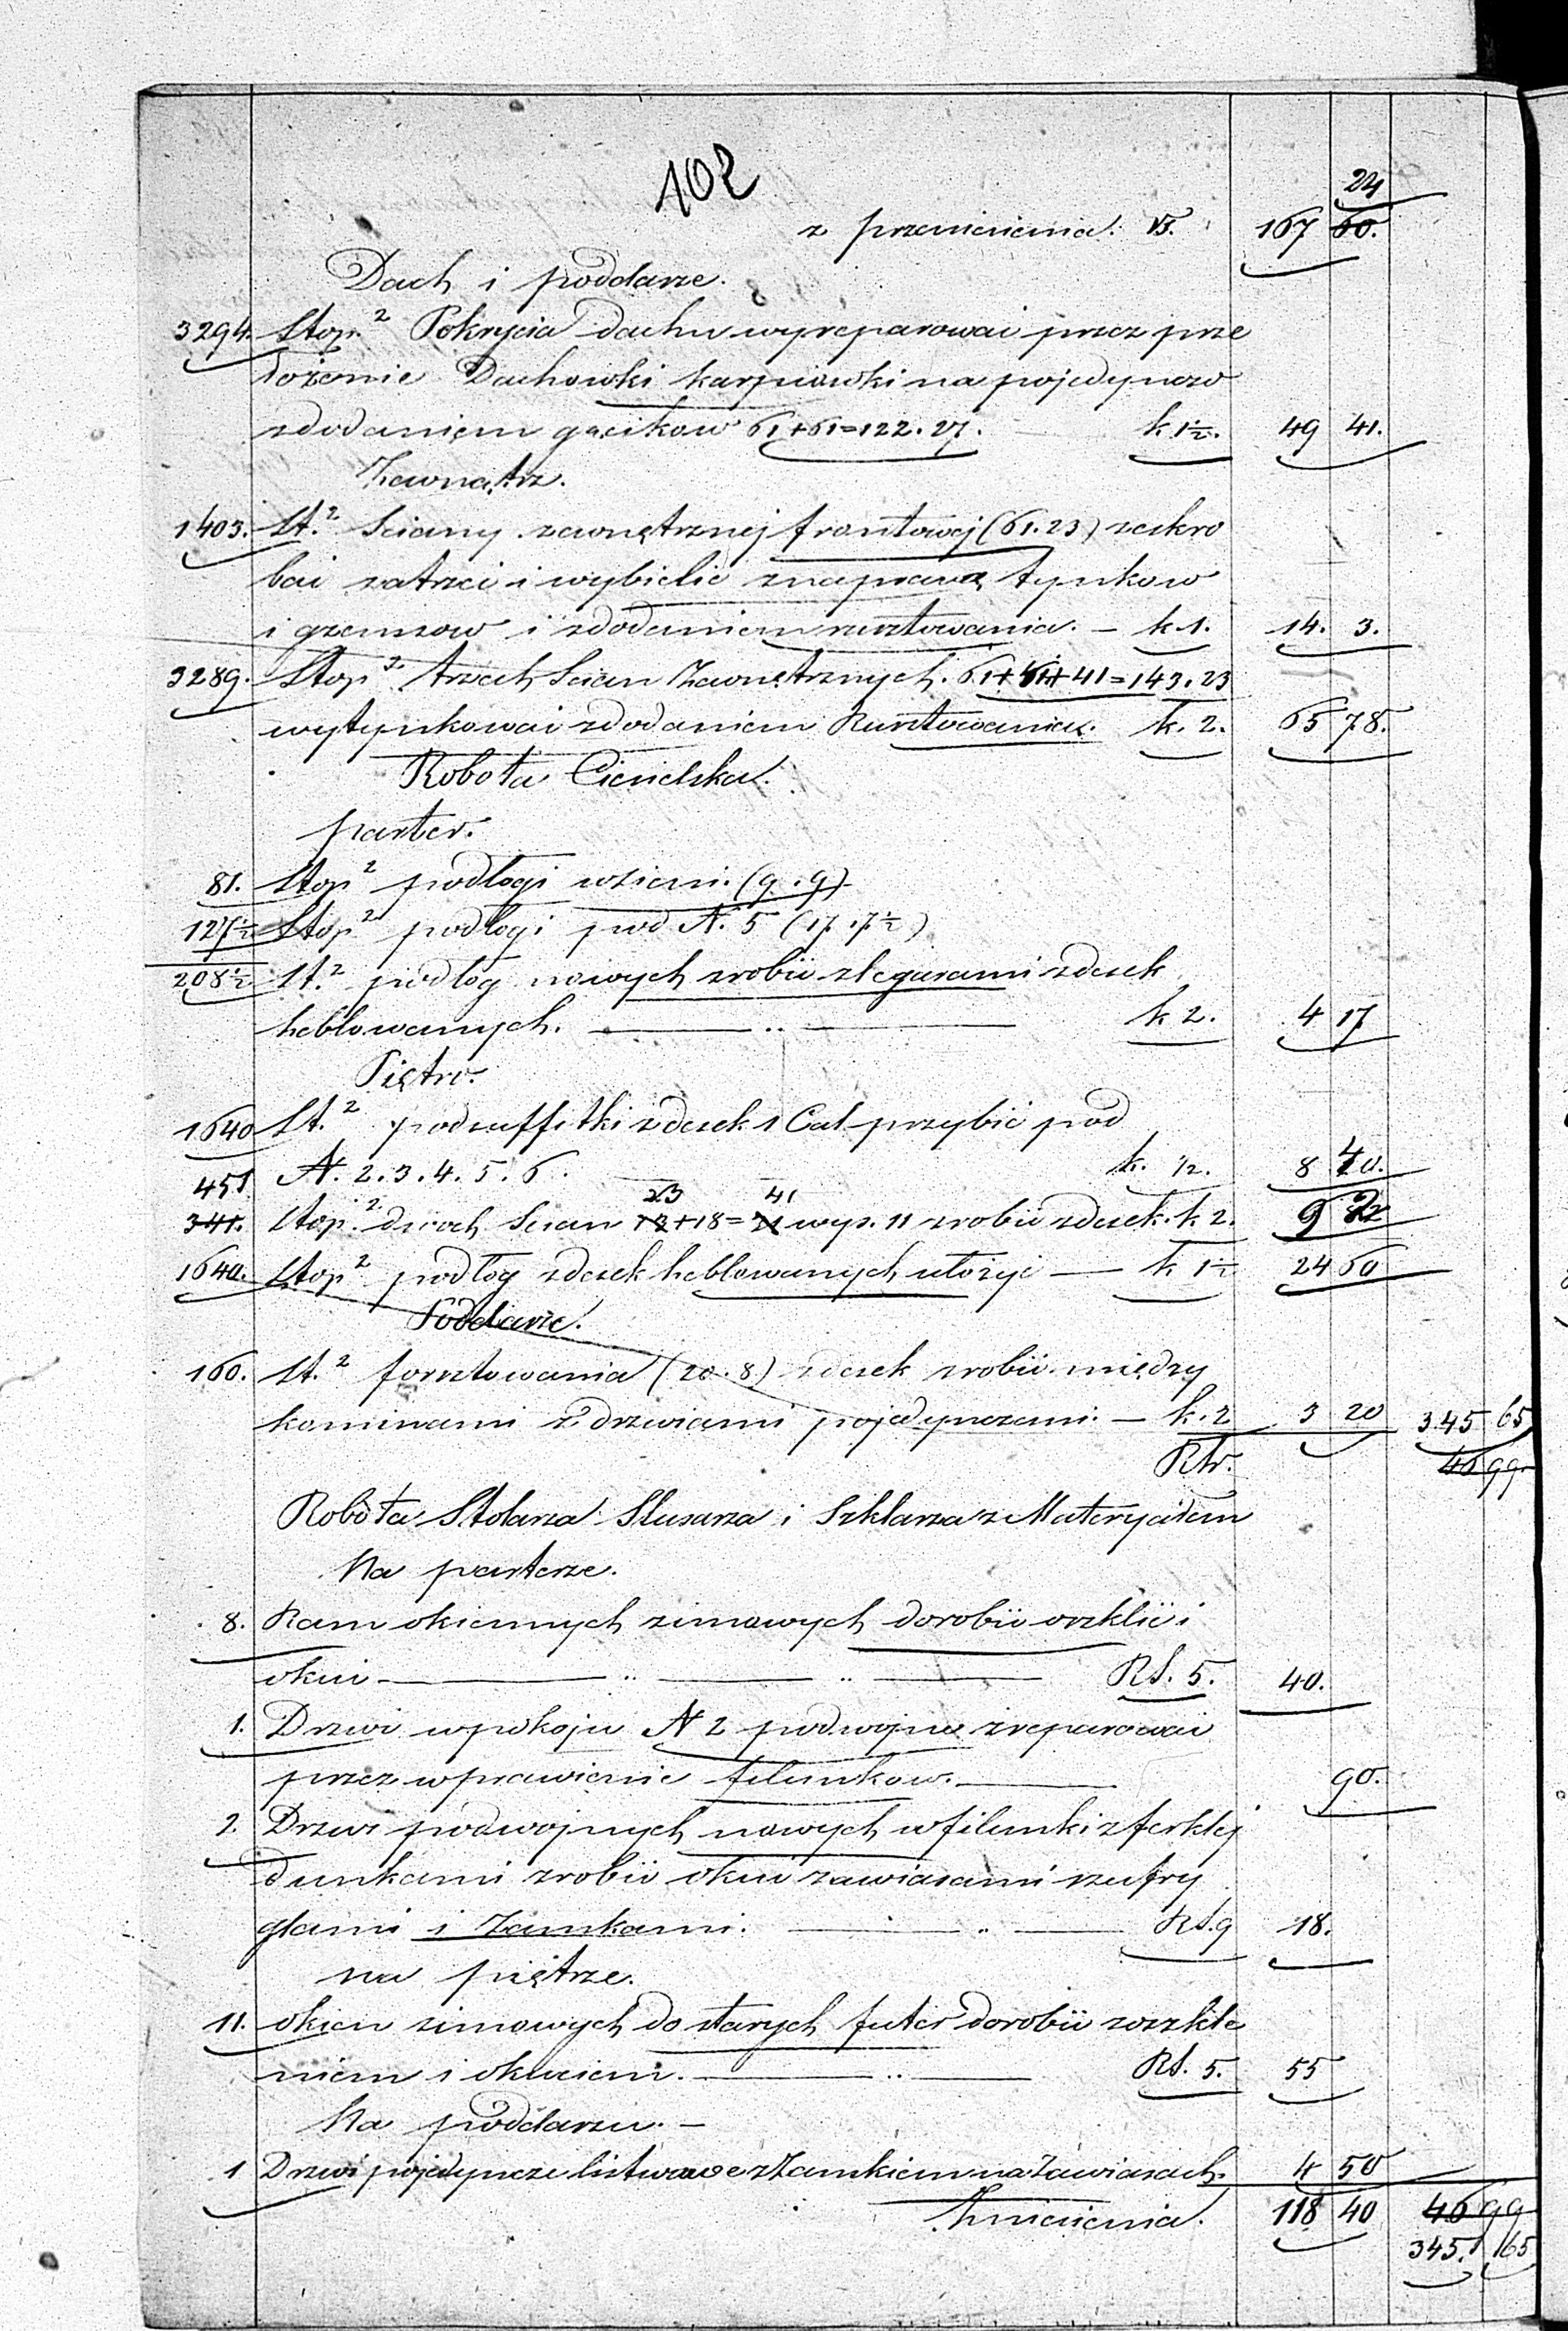 102
24
z przeniesienia. 167 60.
Dach i poddasze.
3294. Stop.² Pokrycia dachu wyreparować przez prze
łożenie Dachowki karpiowki na pojedynczo
zdodaniem gącikow 61+61=122.27. k 1½. 49 41.
Zewnątrz.
1403. St.² Sciany zewnętrznej frontowej (61.23) zeskro
bać zatrzeć i wybielić znaprawą tynkow
i gzemsow i zdodaniem rusztowania. – k 1. 14. 3.
3289. Stop² trzech Scian Zewnętrznych. 61+41+41=143.23
wytynkować zdodaniem Rusztowania. k. 2. 65 78.
Robota Ciesielska.
parter.
81. Stop² podłogi wsieni. (9.9)
127½ Stop² podłogi pod N. 5 (17.7½)
208½ St.² podłog nowych zrobić zlegarami zdesek
heblowanych. k 2. 4 17
Piętro.
1640 St.² podsuffitki zdesek 1 Cal przybić pod
N. 2.3.4.5.6. k. ½. 8 40.
451 23 41
341. Stop.² dwoch Scian 13+18=31 wys. 11 zrobić zdesek. k 2. 9 82
1640. Stop² podłog zdesek heblowanych ułożyć — k 1½ 24 60
Poddasze.
160. St.² forsztowania (20.8) zdesek zrobić między
kominami z drzwiami pojedynczemi. – k. 2 3 20 345 65
RSr. 46 99
Robota Stolarza Slusarza i Szklarza z Materyałem
Na parterze.
8. Ram okiennych zimowych dorobić oszklić i
okuć RS. 5. 40.
1. Drzwi wpokoju N 2 podwojne zreparować
przez wprawienie filunkow. 90.
2. Drzwi podwojnych nowych wfilunki zferklej
dunkami zrobić okuć zawiasami szufry
glami i Zamkami. RS. 9 18.
na piętrze.
11. okien zimowych do starych futer dorobić zoszkle
niem i okuciem. RS. 5. 55
Na poddaszu. –
1 Drzwi pojedyncze listwowe zZamkiem na Zawiasach. 4 50
Zniesienia. 118 40 46 99
345. 65